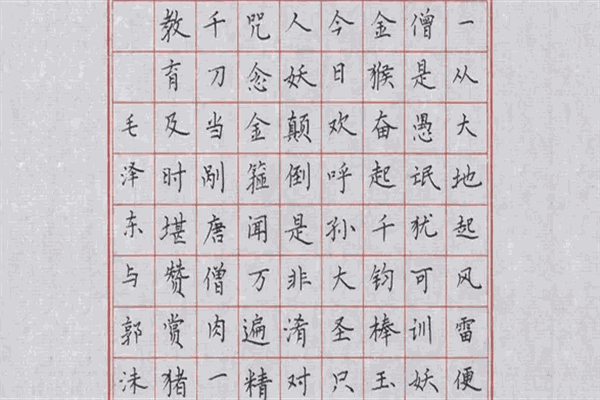 一从大地起风雷便
僧是愚氓犹可训妖
金猴奋起千钧棒玉
今日欢呼孙大圣只
人妖颠倒是非淆对
咒念金箍闻万遍精
千刀当剐唐僧肉一
教育及时堪赞赏猪
毛泽东与郭沫